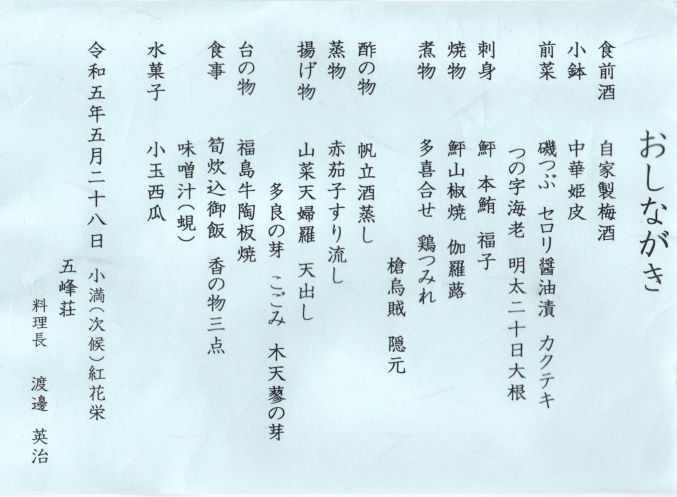 おしながき
食前酒 自家製梅酒
小鉢 中華姫皮
前菜 磯つぶ セロリ醤油漬 カクテキ
つの字海老 明太二十日大根
刺身 鮃 本鮪 福子
焼物 鮃山椒焼 伽羅蕗
煮物 多喜合せ 鶏つみれ
槍烏賊 隠元
酢の物 帆立酒蒸し
蒸物 赤茄子すり流し
揚げ物 山菜天婦羅 天出し
多良の芽 こごみ 木天蓼の芽
台の物 福島牛陶板焼
食事 筍炊込御飯 香の物三点
味噌汁(蜆)
水菓子 小玉西瓜
令和五年五月二十八日 小満(次候)紅花栄
五峰荘
料理長 渡邊 英治